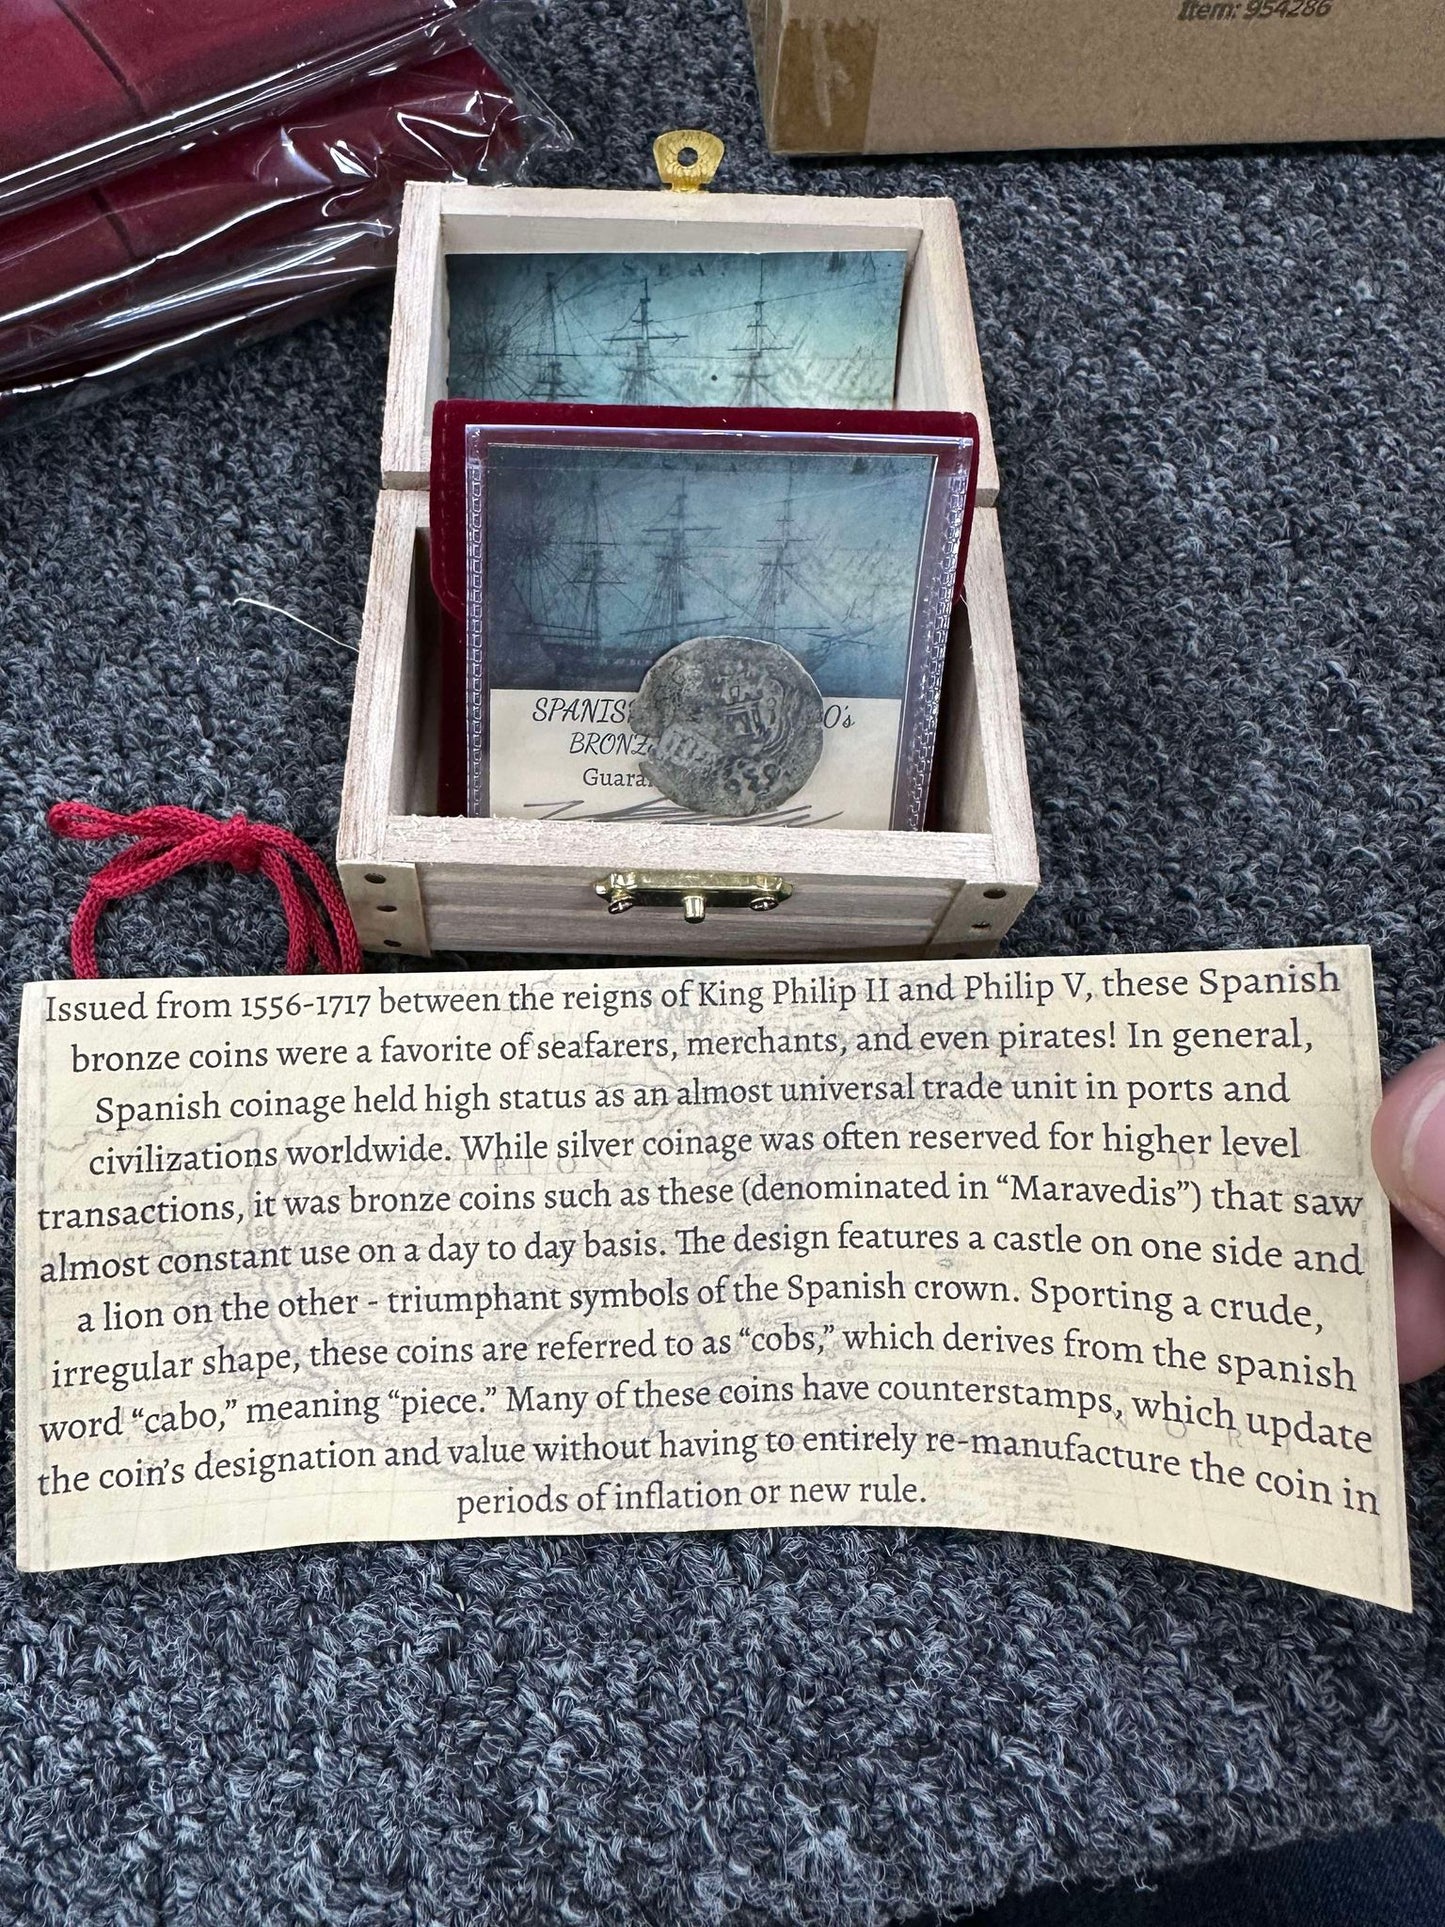 Item: 954286
SEA
SPANIS 0's
BRONZ
Guara
IIII
Issued from 1556-1717 between the reigns of King Philip II and Philip V, these Spanish
bronze coins were a favorite of seafarers, merchants, and even pirates! In general,
Spanish coinage held high status as an almost universal trade unit in ports and
civilizations worldwide. While silver coinage was often reserved for higher level
transactions, it was bronze coins such as these (denominated in “Maravedis”) that saw
almost constant use on a day to day basis. The design features a castle on one side and
a lion on the other - triumphant symbols of the Spanish crown. Sporting a crude,
irregular shape, these coins are referred to as “cobs,” which derives from the spanish
word “cabo,” meaning “piece.” Many of these coins have counterstamps, which update
the coin’s designation and value without having to entirely re-manufacture the coin in
periods of inflation or new rule.